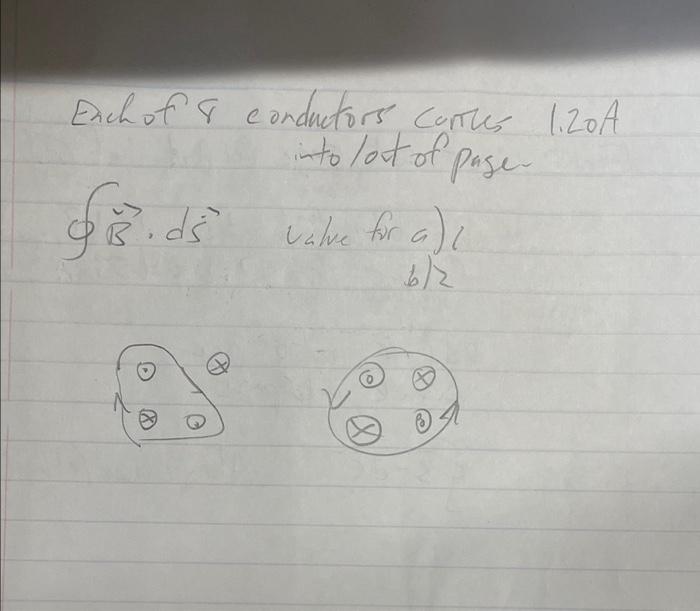 Each of 8 conductors carries 1.20A
into/out of page
∮B⃗ · ds⃗ value for a) 1
b) 2